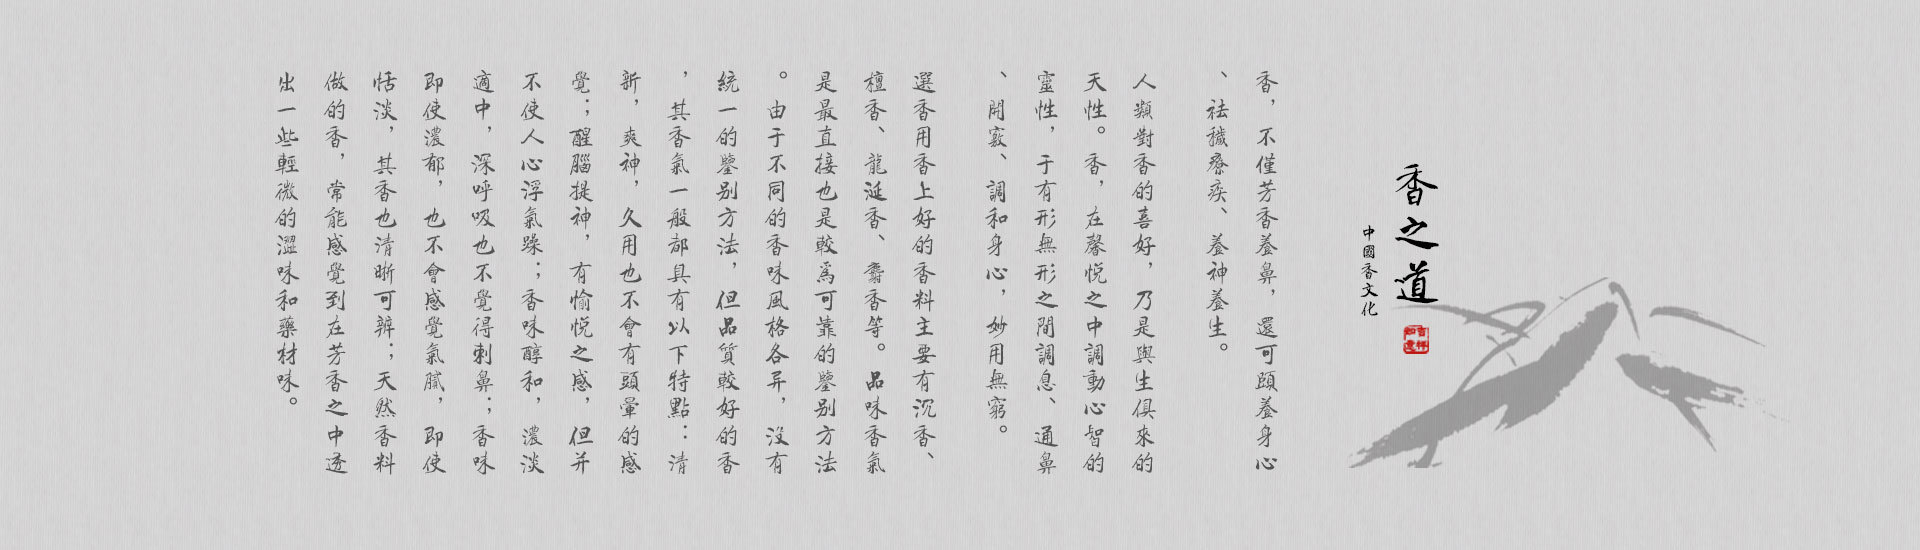 香之道
中國香文化
吉祥如意
香，不僅芳香養鼻，還可頤養身心
、祛穢療疾、養神養生。
人類對香的喜好，乃是與生俱來的
天性。香，在馨悅之中調動心智的
靈性，于有形無形之間調息、通鼻
、開竅、調和身心，妙用無窮。
選香用香上好的香料主要有沉香、
檀香、龍涎香、麝香等。品味香氣
是最直接也是較爲可靠的鑒别方法
。由于不同的香味風格各异，没有
統一的鑒别方法，但品質較好的香
，其香氣一般都具有以下特點：清
新，爽神，久用也不會有頭暈的感
覺；醒腦提神，有愉悅之感，但并
不使人心浮氣躁；香味醇和，濃淡
適中，深呼吸也不覺得刺鼻；香味
即使濃郁，也不會感覺氣膩，即使
恬淡，其香也清晰可辨；天然香料
做的香，常能感覺到在芳香之中透
出一些輕微的澀味和藥材味。